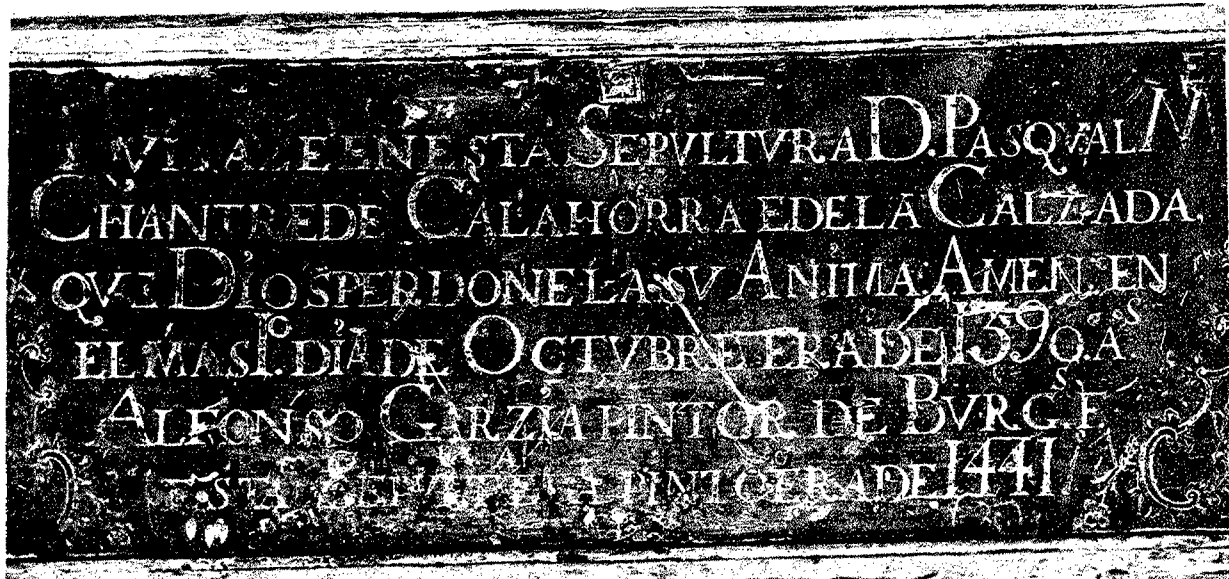 EN ESTA SEPVLTVRA D. PASQVAL M
CHANTRE DE CALAHORRA E DE LA CALZADA.
QVE DIOS PERDONE LA SV ANIMA. AMEN. EN
EL MAS Pº. DIA DE OCTVBRE ERA DE 1390. Aos
ALFONSO GARZIA PINTOR DE BVRGs. E
PINTO ERA DE 1441